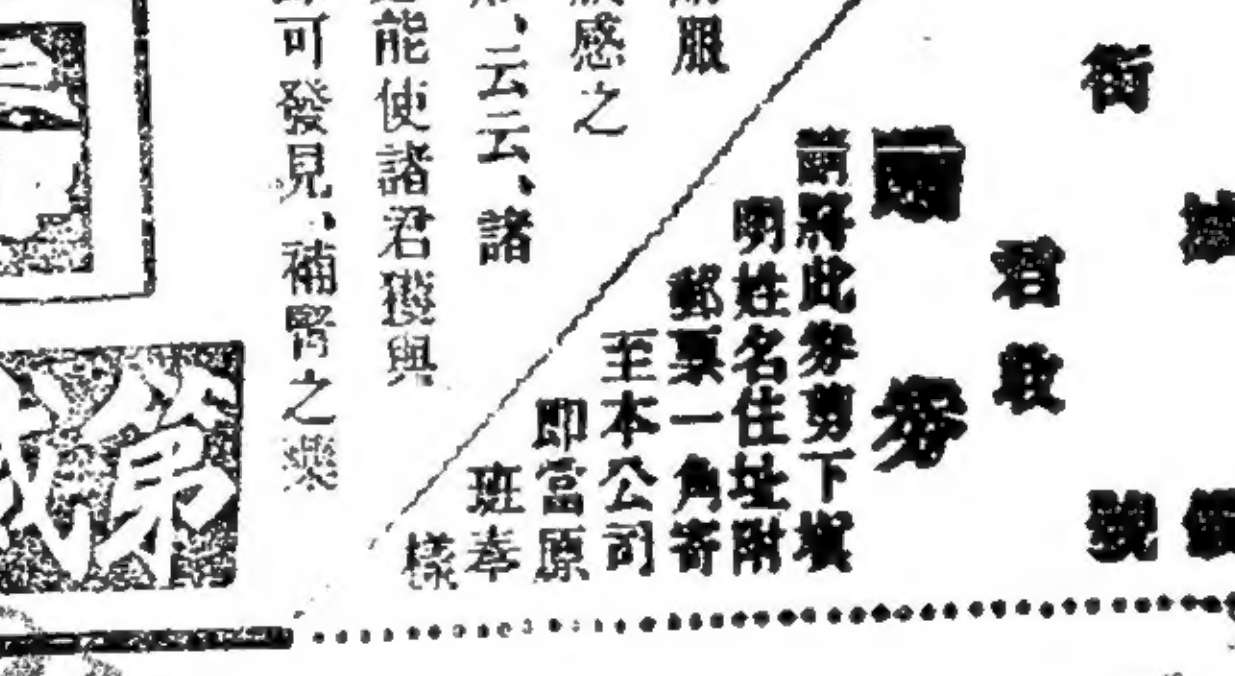 街
號
君收
券
請將此券剪下填
明姓名住址附
郵票一角寄
至本公司
即當原
班奉
樣
服
感之
、云云、諸
能使諸君獲與
可發見、補腎之藥
第